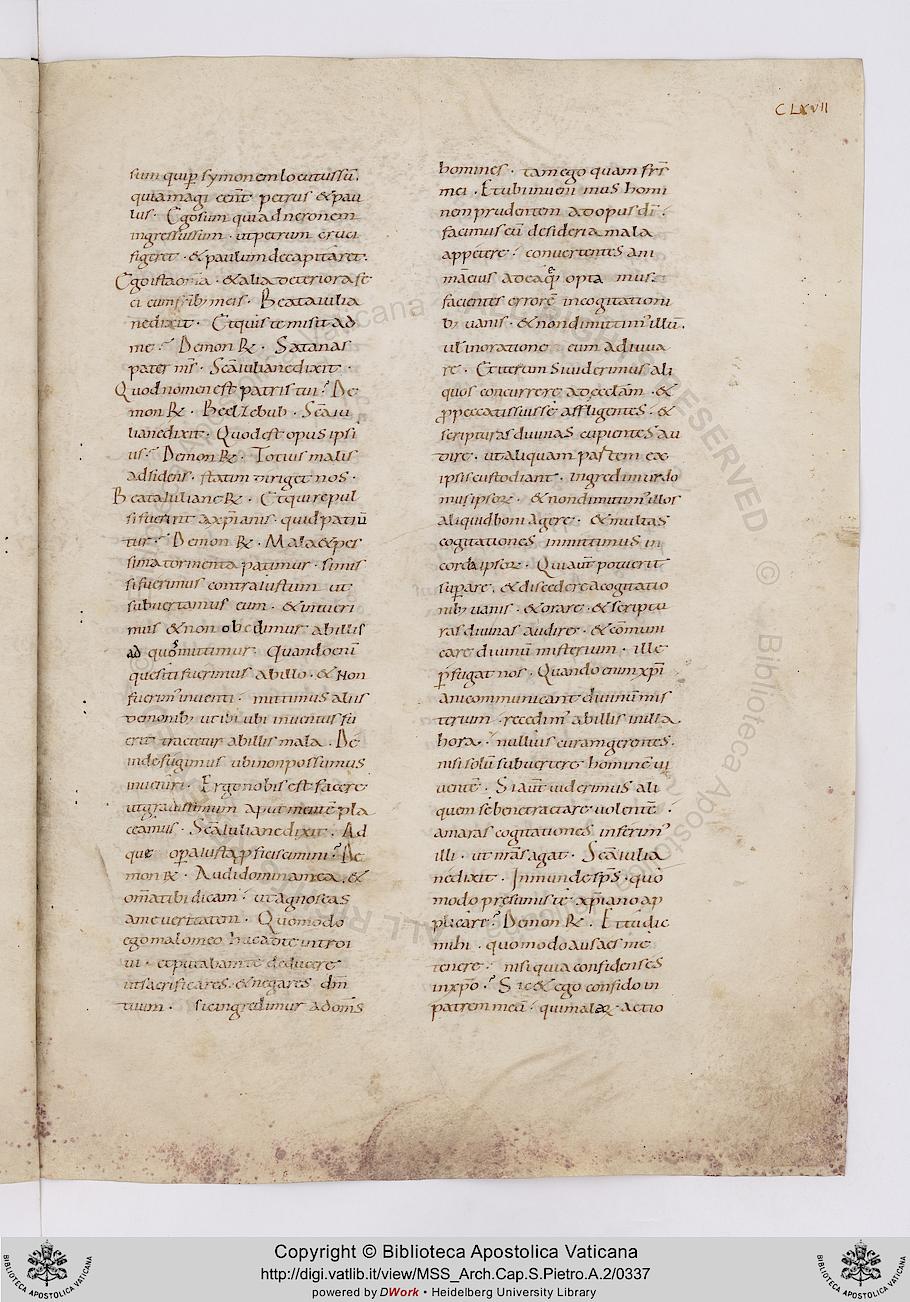 CLXVII
sum qui ꝑ symonem locutus sū.
quia magi eent̄. petrus & pau
lus. Ego sum qui ad neronem
ingressus sum. ut petrum cruci
figeret. & paulum decapitaret.
Ego ista om̄ia. & alia deteriora fe
ci cum frīb; meis. Beata iulia
ne dixit. Et quis te misit ad
me? Demon R̄. Satanas
pater m̄s. Sc̄a iuliane dixit.
Quod nomen est patris tui? De
mon R̄. Beelzebub. Sc̄a iu
liane dixit. Quod est opus ipsi
us? Demon R̄. Totius malis
adsidens. statim diriget nos.
Beata iuliane R̄. Et qui repul
si fuerint a xp̄ianis. quid patiū
tur? Demon R̄. Mala & pes
sima tormenta patimur. si mis
si fuerimus contra iustum ut
subvertamus eum. & inveni
mus & non obedimus ab illis
ad quos mittimur. Quando eni
quesiti fuerimus ab illo. & non
fuerim' inventi. mittimus aliis
demonib; ut ibi ubi inventus fu
erit tractetur ab illis mala. De
inde fugimus ubi non possumus
inveniri. Ergo nobis est facere
ut gravissimum aput mentē pla
ceamus. Sc̄a iuliane dixit. Ad
que opera iusta ꝓficiscimini? De
mon R̄. Audi domina mea. &
om̄a tibi dicam. ut agnoscas
a me veritatem. Quomodo
ego malo meo huc ad te introi
vi. et putabam te deducere
ut sacrificares. & negares dm̄
tuum. sic ingredimur ad om̄s
homines. tam ego quam frs̄
mei. Et ubi inveni mus homi
nem prudentem ad opus dī.
facimus eū desideria mala
appetere. convertentes ani
mā eius ad ea q̄ opta mus.
facientes errorē in cogitationi
b; vanis. & non dimittim' illū.
ul in oratione eum adiuva
re. Et iterum si viderimus ali
quos concurrere ad eccl̄am. &
ꝓ peccatis suis se affligentes. &
scripturas divinas cupientes au
dire. ut aliquam partem ex
ipsis custodiant. ingredimur do
mus ipsoꝝ. & non dimittim' illos
aliquid boni agere. & multas
cogitationes inmittimus in
corda ipsoꝝ. Qui aut̄ potuerit
suꝑare. & discedere a cogitatio
nib; vanis. & orare. & scriptu
ras divinas audire. & cōmuni
care divinū misterium. ille
ꝑfugat nos. Quando enim xp̄i
ani communicant divinū mis
terium. recedim' ab illis in illa
hora. nullius curam gerentes.
nisi solū subvertere homine vi
ventē. Si aut̄ viderimus ali
quem se bene tractare volentē.
amaras cogitationes inserim'
illi. ut nr̄as agat. Sc̄a iulia
ne dixit. Inmunde sps̄. quo
modo presumis te xp̄iano ap
plicare? Demon R̄. Et tu dic
mihi. quomodo ausa es me
tenere. nisi quia confidens es
in xp̄o? Sic & ego confido in
patrem meū. qui malaꝝ actio
Copyright © Biblioteca Apostolica Vaticana
http://digi.vatlib.it/view/MSS_Arch.Cap.S.Pietro.A.2/0337
powered by DWork • Heidelberg University Library